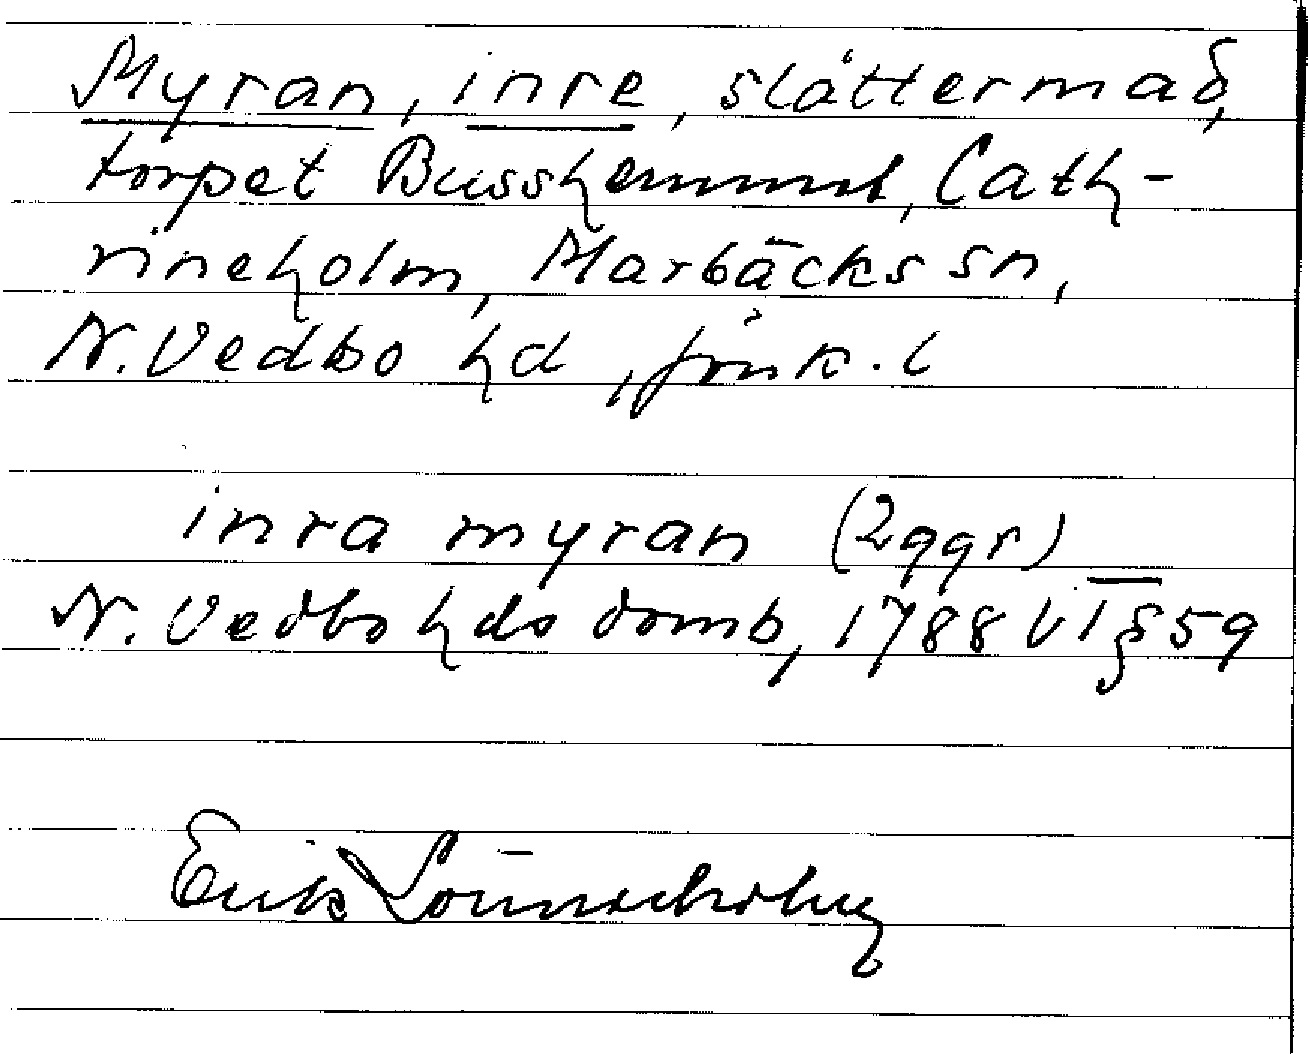 Myran, inre, slåttermad,
torpet Busshemmet, Cath-
rineholm, Marbäcks sn,
N. Vedbo hd, Jönk. l
inra myran (2 ggr)
N. Vedbo hds domb, 1788 VT § 59
Erik Lönnerholm